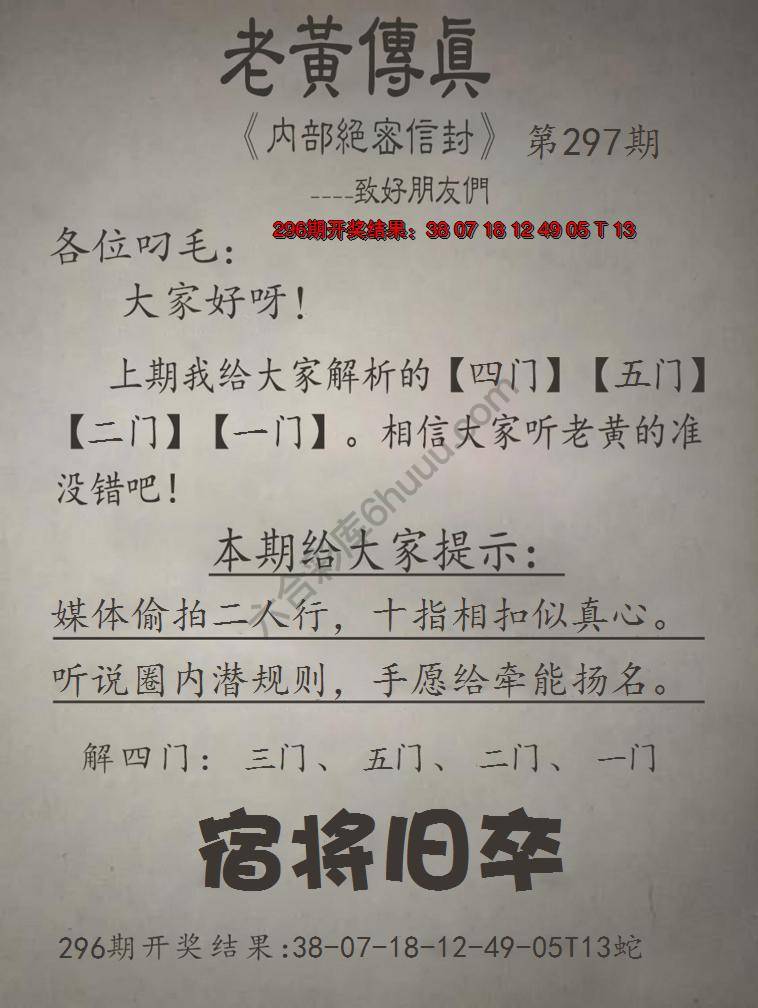 老黃傳眞
《内部絕密信封》 第297期
----致好朋友們
296期开奖结果：38 07 18 12 49 05 T 13
各位叼毛：
大家好呀！
上期我给大家解析的【四门】【五门】
【二门】【一门】。相信大家听老黄的准
没错吧！
本期给大家提示：
媒体偷拍二人行，十指相扣似真心。
听说圈内潜规则，手愿给牵能扬名。
解四门：三门、五门、二门、一门
宿将旧卒
296期开奖结果:38-07-18-12-49-05T13蛇
六合彩库6huuu.com